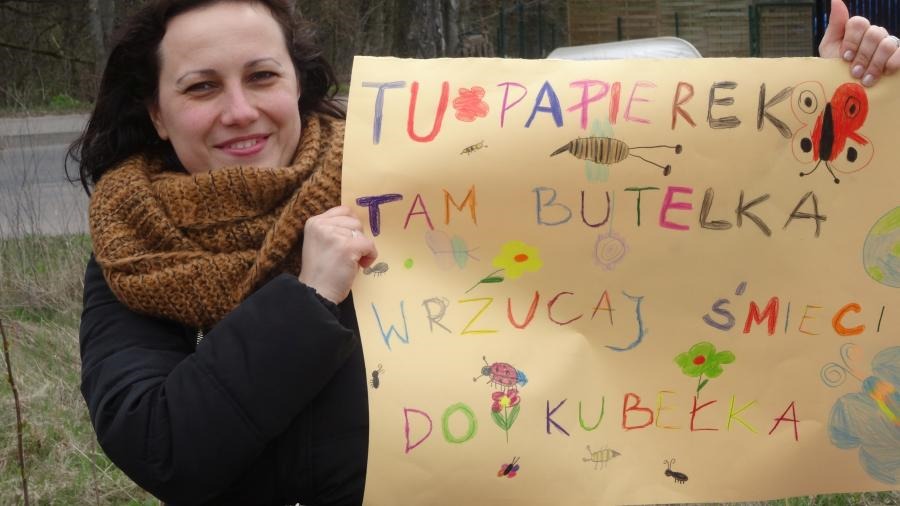 TU PAPIEREK
TAM BUTELKA
WRZUCAJ ŚMIECI
DO KUBEŁKA